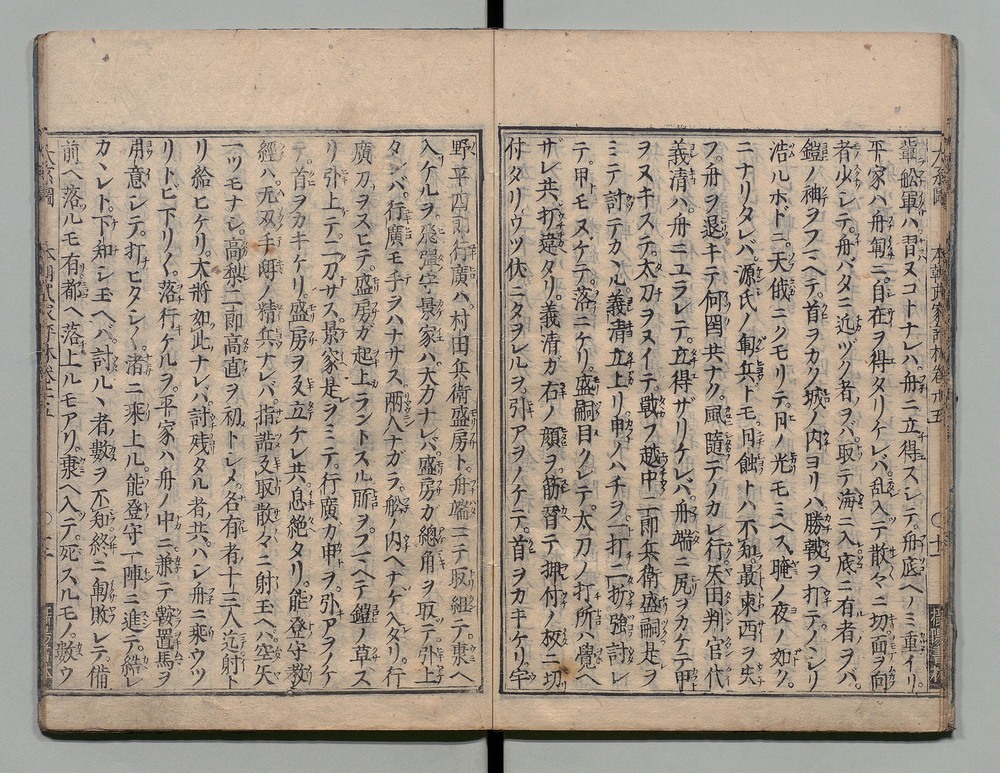 輩船軍ハ習ヌコトナレハ舟ニ立得スシテ舟底ヘノミ重イリ
平家ハ舟軍ニ自在ヲ得タリケレバ乱入テ散々ニ切面ヲ向
者少シテ舟バタニ近ヅク者ヲバ取テ海ニ入底ニ有者ヲバ
鎧ノ袖ヲフミヘテ首ヲカク城ノ内ヨリハ勝戦ヲ打テノヽシリ
浩ルホドニ天俄ニクモリテ月ノ光モミヘス朧ノ夜ノ如ク
ニナリタレバ源氏ノ軍兵トモ月蝕トハ不知最東西ヲ失
フ舟ヲ退キテ何国共ナク風ニ随テノカレ行矢田判官代
義清ハ舟ニユラレテ立得ザリケレバ舟端ニ尻ヲカケテ甲
ヲヌキステ太刀ヲヌイテ戦フ越中二郎兵衛盛嗣是ヲ
ミテ討テカヽル義清立上リ甲ノハチヲ一打ニ打強討レ
テ甲モヌケテ落ニケリ盛嗣目クレテ太刀ノ打所ハ覺ヘ
ザレ共打違タリ義清カ右ノ顔ヲ筋晉テ押付ノ板ニ切
付タリウツ伏ニタヲレルヲ引アヲノケテ首ヲカキケリ宇
野平四郎行廣ハ村田兵衛盛房ト舟端ニテ取組テ東ヘ
入ケルヲ飛騨守景家ハ大力ナレバ盛房カ總角ヲ取テ引上
タレバ行廣モ手ヲハナサス兩人ナガラ船ノ内ヘナゲ入タリ行
廣刀ヲヌヒテ盛房カ起上ラントスル所ヲフミヘテ鎧ノ草ス
リ引上テ二刀サス景家是ヲミテ行廣カ甲ヲ引アヲノケ
テ首ヲカキケリ盛房ヲ又立ケレ共息絶タリ能登守教
經ハ无双手聞ノ精兵ナレバ指詰又取散々ニ射玉ヘバ空矢
一ツモナシ高梨二郎高直ヲ初トシメ名有者十三人迄射ト
リ給ヒケリ大將如此ナレバ討残タル者共ハシ舟ニ乘ウツ
リトビ下リ〱落行ケルヲ平家ハ舟ノ中ニ兼テ鞍置馬ヲ
用意シテ打ヒタシ〱渚ニ乘上ル能登守一陣ニ進テ給レ
カシト下知シ玉ヘバ討ルヽ者數ヲ不知終ニ軍敗レテ備
前ヘ落ルモ有都ヘ落上ルモアリ東ヘ入テ死スルモノ數ウ